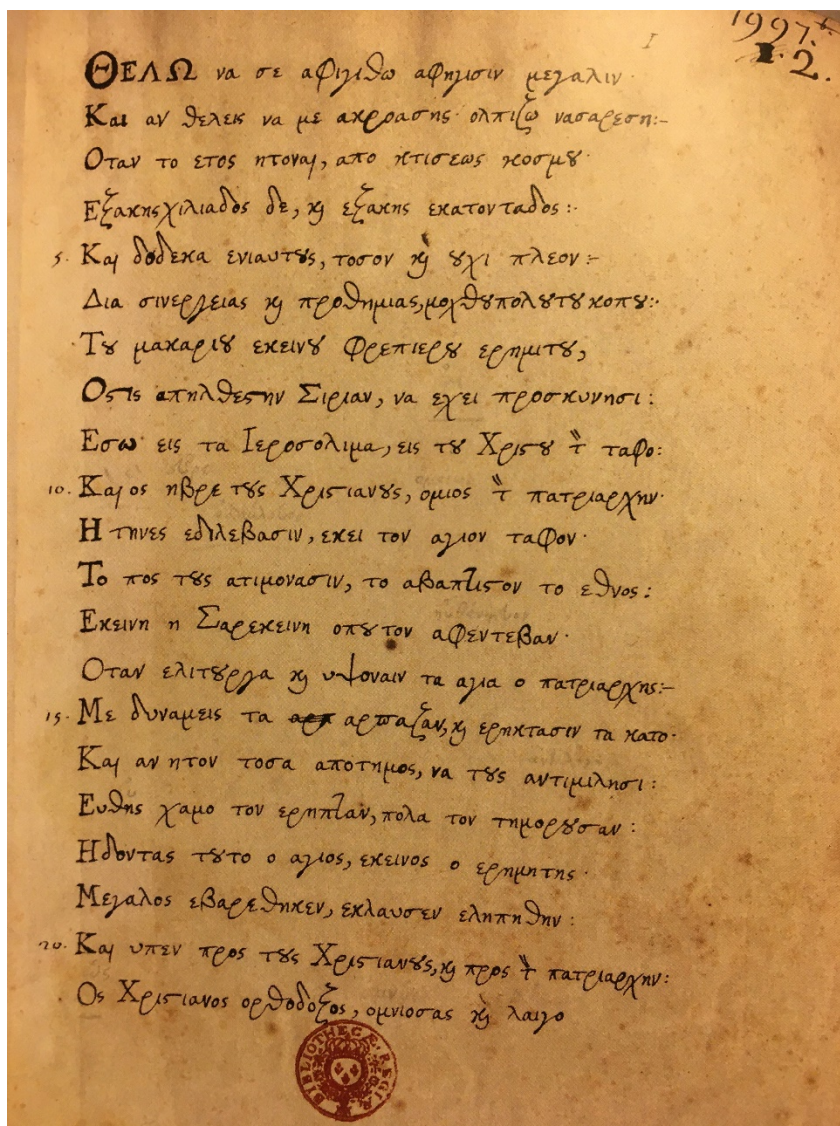 1
1997. 6.
1. 2.
ΘΕΛΩ να σε αφιγιθω αφηγισιν μεγαλιν·
Και αν θελεις να με ακροασης· ολπιζω νασαρεση:-
Οταν το ετος ητοναι, απο κτισεως κοσμȣ·
Εξακηςχιλιαδος δε, ϗ εξακης εκατονταδος:·
5. Και δοδεκα ενιαυτȣς, τοσον ϗ ȣχι πλεον:-
Δια σινεργειας ϗ προθημιας, μοχθȣπολȣτȣκοπȣ:·
Τȣ μακαριȣ εκεινȣ Φρεπιερȣ ερημιτȣ,
Οςτις απηλθεςτην Σιριαν, να εχει προσκυνησι:
Εσω εις τα Ιεροσολιμα, εις τȣ Χριστȣ τ̏ ταφο:
10. Και ος ηβρε τȣς Χριστιανȣς, ομιος τ̏ πατριαρχην·
Η τηνες εδȣλεβασιν, εκει τον αγιον ταφον·
Το πος τȣς ατιμονασιν, το αβαπτιστον το εθνος:
Εκεινη η Σαρεκεινη οπȣτον αφεντεβαν·
Οταν ελιτȣργα ϗ υψοναιν τα αγια ο πατριαρχης:-
15. Με δυναμεις τα αρπαζαν, ϗ ερηκτασιν τα κατο·
Και αν ητον τοσα αποτημος, να τȣς αντιμιλησι:
Ευθης χαμο τον ερηπταν, πολα τον τημορȣσαν:
Ηδοντας τȣτο ο αγιος, εκεινος ο ερημητης·
Μεγαλος εβαρεθηκεν, εκλαυσεν εληπηθην:
20. Και υπεν προς τȣς Χριστιανȣς, ϗ προς τ̏ πατριαρχην:
Ος Χριστιανος ορθοδοξος, ομνιοσας ϗ λαιγο
BIBLIOTHECÆ REGIÆ